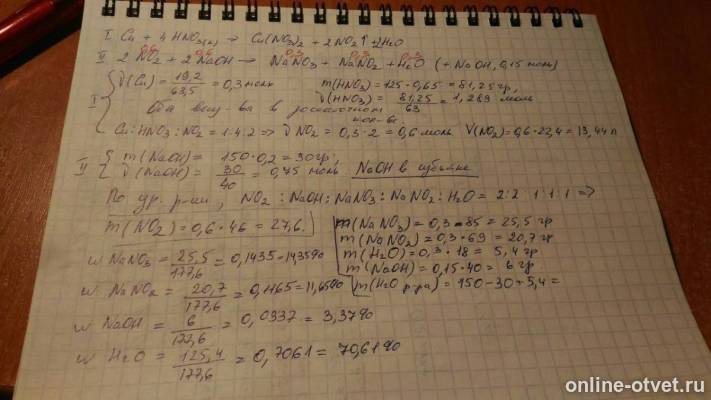 I. Cu + 4HNO₃(к) → Cu(NO₃)₂ + 2NO₂↑ + 2H₂O
0,6 0,6 0,3 0,3 0,3
II. 2NO₂ + 2NaOH → NaNO₃ + NaNO₂ + H₂O (+ NaOH, 0,15 моль)
I ν(Cu) = 19,2/63,5 = 0,3 моль m(HNO₃) = 125·0,65 = 81,25 гр,
ν(HNO₃) = 81,25/63 = 1,289 моль
Оба вещ-ва в
кол-ве.
Cu : HNO₃ : NO₂ = 1:4:2 ⇒ ν NO₂ = 0,3·2 = 0,6 моль V(NO₂) = 0,6·22,4 = 13,44 л
II m(NaOH) = 150·0,2 = 30 гр,
ν(NaOH) = 30/40 = 0,75 моль NaOH в избытке
По ур. р-ции, NO₂ : NaOH : NaNO₃ : NaNO₂ : H₂O = 2:2:1:1:1 ⇒
m(NO₂) = 0,6·46 = 27,6.
m(NaNO₃) = 0,3·85 = 25,5 гр
m(NaNO₂) = 0,3·69 = 20,7 гр
m(H₂O) = 0,3·18 = 5,4 гр
m(NaOH) = 0,15·40 = 6 гр
m(H₂O р-ра) = 150-30+5,4 =
ω NaNO₃ = 25,5/177,6 = 0,1435 = 14,35%
ω NaNO₂ = 20,7/177,6 = 0,1165 = 11,65%
ω NaOH = 6/177,6 = 0,0337 = 3,37%
ω H₂O = 125,4/177,6 = 0,7061 = 70,61%
online-otvet.ru